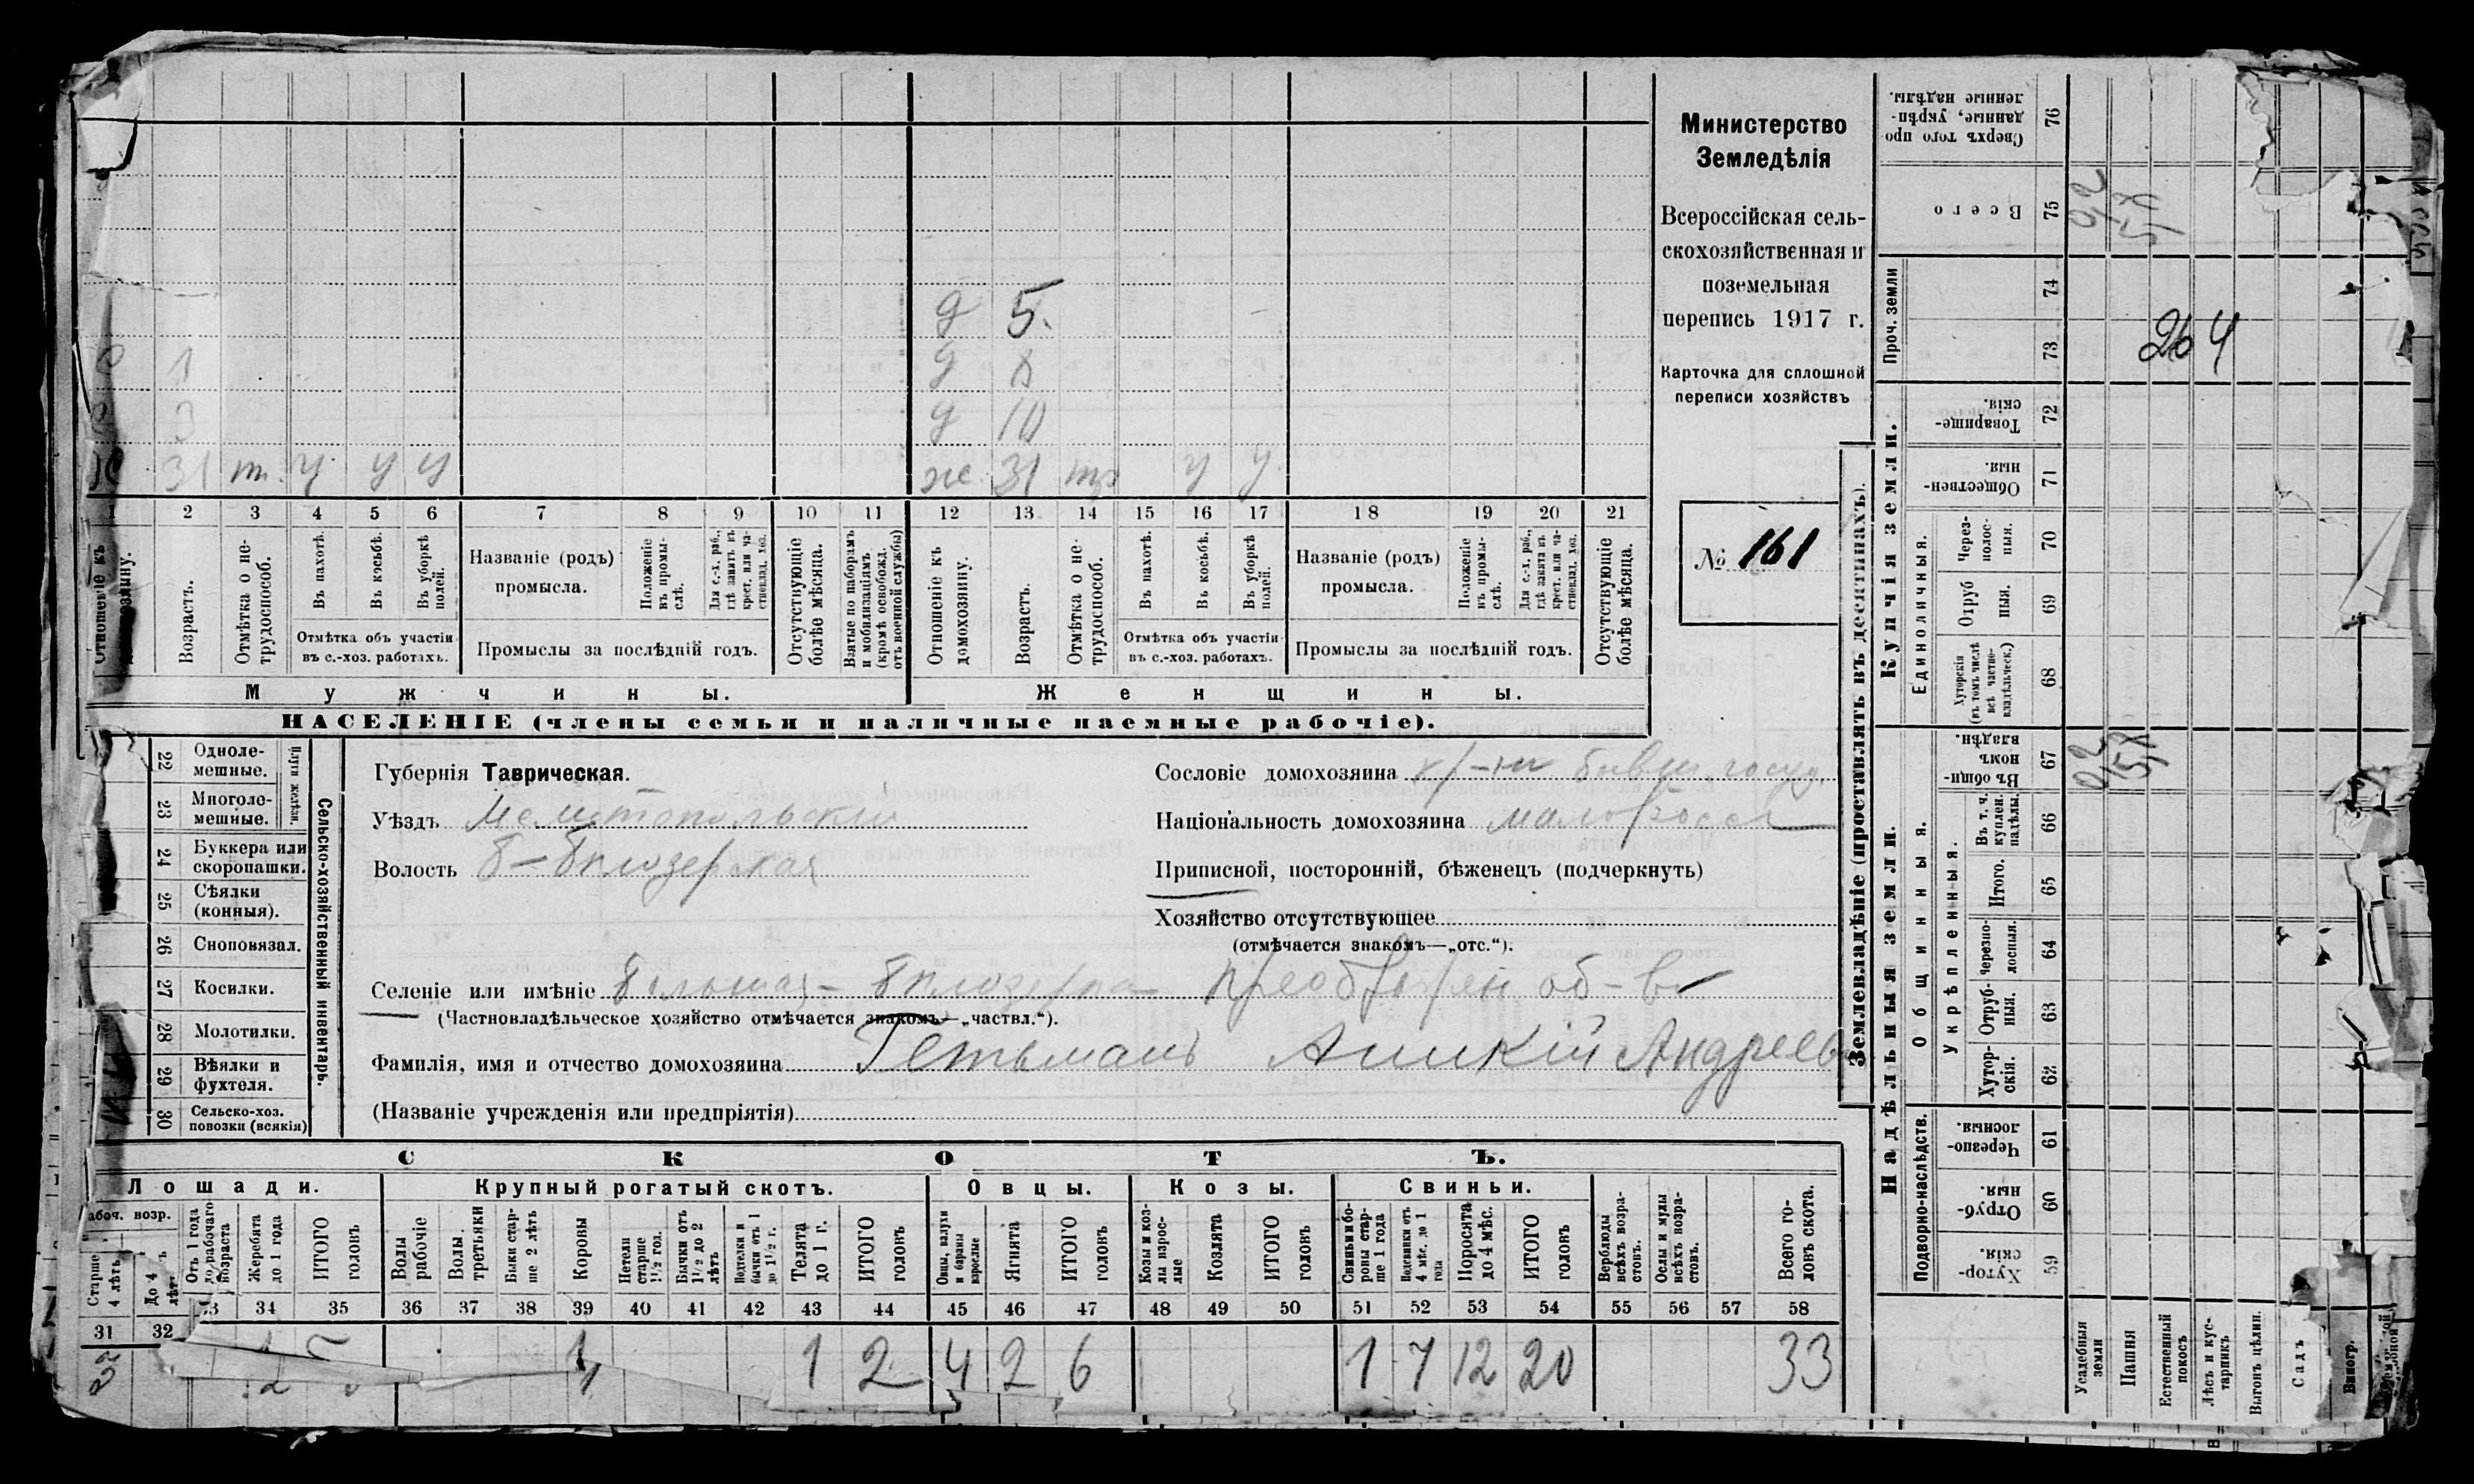 Министерство
Земледѣлія
Всероссійская сель-
скохозяйственная и
поземельная
перепись 1917 г.
Карточка для сплошной
переписи хозяйствъ
№ 161
д 5.
д 8
д 10
1
3
31 т. у у у
ж 31 тр у у
2 3 4 5 6 7 8 9 10 11 12 13 14 15 16 17 18 19 20 21
Отношеніе къ домохозяину.
Возрастъ.
Отмѣтка о не-
трудоспособ.
Въ пахотѣ.
Въ косьбѣ.
Въ уборкѣ
полей.
Отмѣтка объ участіи
въ с.-хоз. работахъ.
Названіе (родъ)
промысла.
Положеніе
въ промы-
слѣ.
Для с.-х. раб.,
гдѣ занятъ въ
крест. или ча-
стновлад. хоз.
Промыслы за послѣдній годъ.
Отсутствующіе
болѣе мѣсяца.
Взятые по наборамъ
и мобилизаціямъ
(кромѣ освобожд.
отъ военной службы)
Отношеніе къ
домохозяину.
Возрастъ.
Отмѣтка о не-
трудоспособ.
Въ пахотѣ.
Въ косьбѣ.
Въ уборкѣ
полей.
Отмѣтка объ участіи
въ с.-хоз. работахъ.
Названіе (родъ)
промысла.
Положеніе
въ промы-
слѣ.
Для с.-х. раб.,
гдѣ занята въ
крест. или ча-
стновлад. хоз.
Промыслы за послѣдній годъ.
Отсутствующіе
болѣе мѣсяца.
Мужчины.
Женщины.
НАСЕЛЕНІЕ (члены семьи и наличные наемные рабочіе).
22 Одноле-
мешные.
23 Многоле-
мешные.
Плуги желѣзн.
24 Буккера или
скоропашки.
25 Сѣялки
(конныя).
26 Сноповязал.
27 Косилки.
28 Молотилки.
29 Вѣялки и
фухтеля.
30 Сельско-хоз.
повозки (всякія)
Сельско-хозяйственный инвентарь.
Губернія Таврическая.
Уѣздъ Мелитопольскій
Волость Б-Бѣлозерская
Сословіе домохозяина кр-нъ бывш. госуд.
Національность домохозяина малоросс
Приписной, посторонній, бѣженецъ (подчеркнуть)
Хозяйство отсутствующее
(отмѣчается знакомъ—„отс.“).
Селеніе или имѣніе Большая-Бѣлозерка об-ва
(Частновладѣльческое хозяйство отмѣчается знакомъ—„частвл.“).
Фамилія, имя и отчество домохозяина Гетьманъ Андреев
(Названіе учрежденія или предпріятія)
СКОТЪ.
Лошади.
Крупный рогатый скотъ.
Овцы.
Козы.
Свиньи.
Старше
4 лѣтъ
До 4
лѣтъ
Отъ 1 года
до рабочаго
возраста
Жеребята
до 1 года
ИТОГО
головъ
Волы
рабочіе
Волы
третьяки
Быки стар-
ше 2 лѣтъ
Коровы
Нетели
старше
1½ год.
Бычки отъ
1½ до 2
лѣтъ
Подтелки и
бычки отъ 1
до 1½ г.
Телята
до 1 г.
ИТОГО
головъ
Овцы, валухи
и бараны
взрослые
Ягнята
ИТОГО
головъ
Козы и коз-
лы взрос-
лые
Козлята
ИТОГО
головъ
Свиньи и бо-
ровы стар-
ше 1 года
Подсвинки отъ
4 мѣс. до 1
года
Поросята
до 4 мѣс.
ИТОГО
головъ
Верблюды
всѣхъ возра-
стовъ.
Ослы и мулы
всѣхъ возра-
стовъ.
Всего го-
ловъ скота.
31 32 33 34 35 36 37 38 39 40 41 42 43 44 45 46 47 48 49 50 51 52 53 54 55 56 57 58
1 1 2 4 2 6 1 7 12 20 33
Землевладѣніе (проставлять въ десятинахъ).
Надѣльныя земли.
Купчія земли.
Проч. земли
Подворно-наслѣдств.
Общинныя.
Укрѣпленныя.
Единоличныя.
Сверхъ того про
данные, укрѣп-
ленные надѣлы.
76
Всего
75
74
73
Товарище-
скія.
72
Обществен-
ныя.
71
Через-
полос-
ныя.
70
Отруб
ныя.
69
Хуторскія
(въ томъ числѣ
всѣ частно-
владѣльческ.)
68
Въ общин-
номъ
владѣн.
67
Въ т. ч.
куплен.
надѣлы.
66
Итого.
65
Черезпо-
лосныя.
64
Отруб-
ныя.
63
Хутор-
скія.
62
Черезпо-
лосныя.
61
Отруб-
ныя.
60
Хутор-
скія.
59
0,2
264
0,2
Усадебныя
земли
Пашня
Естественный
покосъ
Лѣсъ и кус-
тарникъ
Выгонъ цѣлин.
Садъ
Виногр.